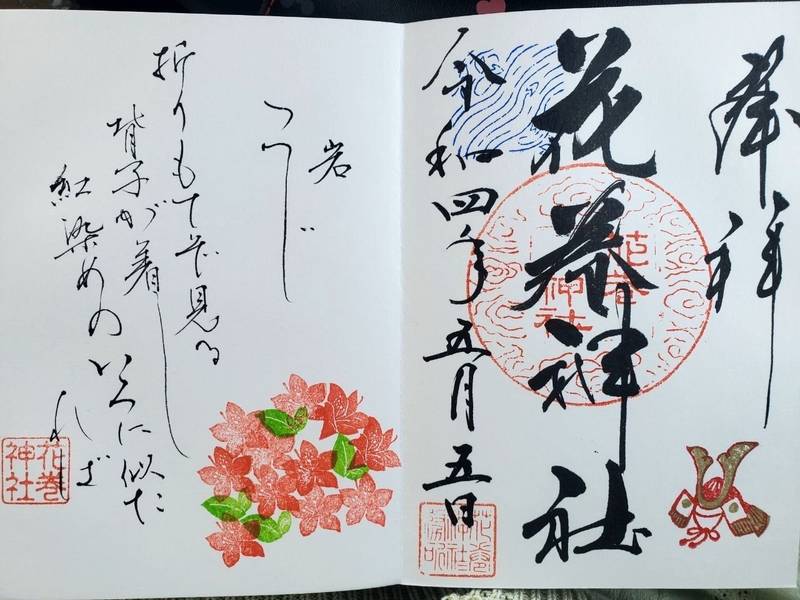 奉拝
花巻神社
花巻神社
令和四年五月五日
岩
つつじ
折りもてぞ見る
背子が着し
紅染めのいろに似た
れば
花巻神社